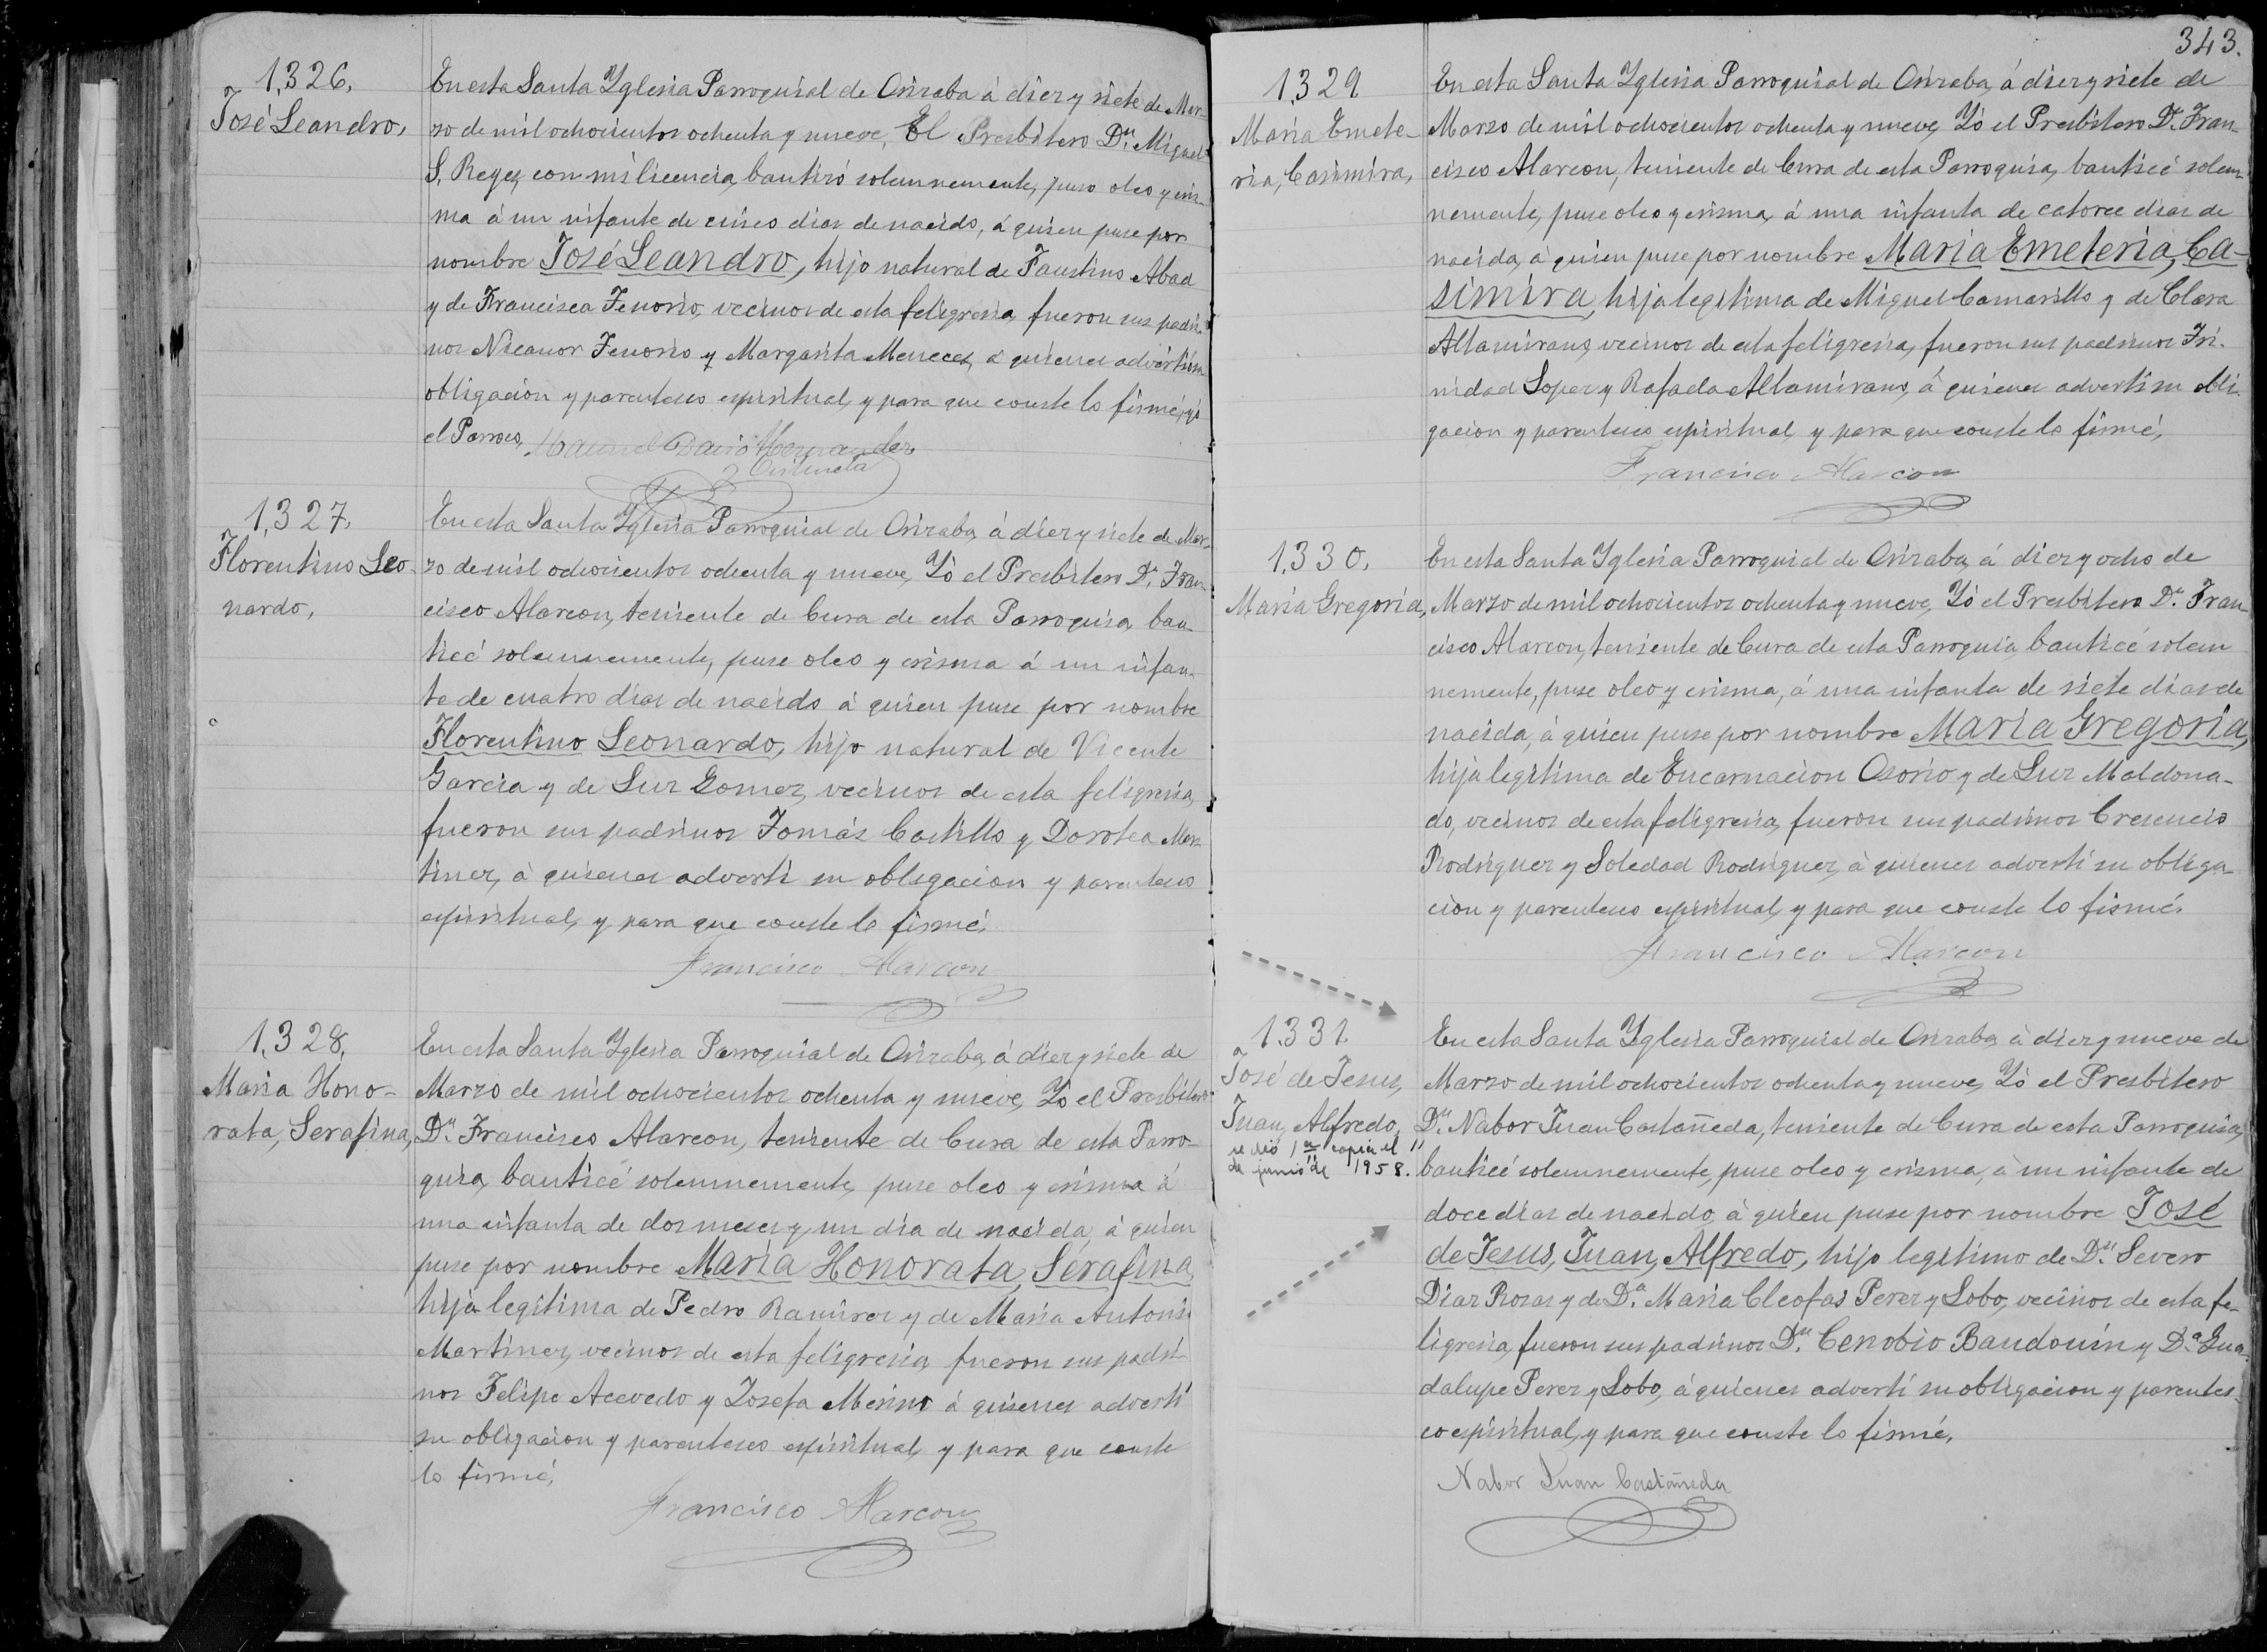 1,326,
José Leandro,
En esta Santa Yglesia Parroquial de Orizaba á diez y siete de Mar-
zo de mil ochocientos ochenta y nueve, El Presbítero Dn. Miguel
S. Reyes, con mi licencia, bautizó solemnemente, puso oleo y cris-
ma á un infante de cinco dias de nacido, á quien puse por
nombre José Leandro, hijo natural de Faustino Abad
y de Francisca Tenorio, vecinos de esta feligresia, fueron sus padri-
nos Nicanor Tenorio y Margarita Meneces, á quienes advirtió su
obligacion y parentesco espiritual, y para que conste lo firmé, yó
el Parroco,
Manuel David Hernandez
1,327,
Florentino Leo-
nardo,
En esta Santa Yglesia Parroquial de Orizaba, á diez y siete de Mar-
zo de mil ochocientos ochenta y nueve, Yó el Presbítero Dn. Fran-
cisco Alarcon, teniente de Cura de esta Parroquia, bau-
ticé solemnemente, puse oleo y crisma á un infan-
te de cuatro dias de nacido á quien puse por nombre
Florentino Leonardo, hijo natural de Vicente
Garcia y de Luz Gomez, vecinos de esta feligresia,
fueron sus padrinos Tomás Castillo y Dorotea Mar-
tinez, á quienes advertí su obligacion y parentesco
espiritual, y para que conste lo firmé,
Francisco Alarcon
1,328,
Maria Hono-
rata, Serafina,
En esta Santa Yglesia Parroquial de Orizaba, á diez y siete de
Marzo de mil ochocientos ochenta y nueve, Yó el Presbítero
Dn. Francisco Alarcon, teniente de Cura de esta Parro-
quia, bauticé solemnemente, puse oleo y crisma á
una infanta de dos meses y un dia de nacida, á quien
puse por nombre Maria Honorata, Serafina,
hija legítima de Pedro Ramirez y de Maria Antonia
Martinez, vecinos de esta feligresia, fueron sus padri-
nos Felipe Acevedo y Josefa Merino á quienes advertí
su obligacion y parentesco espiritual, y para que conste
lo firmé,
Francisco Alarcon
343.
1,329
Maria Emete-
ria, Casimira,
En esta Santa Yglesia Parroquial de Orizaba, á diez y siete de
Marzo de mil ochocientos ochenta y nueve, Yó el Presbítero Dn. Fran-
cisco Alarcon, teniente de Cura de esta Parroquia, bauticé solem-
nemente, puse oleo y crisma, á una infanta de catorce dias de
nacida, á quien puse por nombre Maria Emeteria, Ca-
simira, hija legítima de Miguel Camarillo y de Clara
Altamirano, vecinos de esta feligresia, fueron sus padrinos Tri-
nidad Lopez y Rafaela Altamirano, á quienes advertí su obli-
gacion y parentesco espiritual, y para que conste lo firmé,
Francisco Alarcon
1,330,
Maria Gregoria,
En esta Santa Yglesia Parroquial de Orizaba, á diez y ocho de
Marzo de mil ochocientos ochenta y nueve, Yó el Presbítero Dn. Fran-
cisco Alarcon, teniente de Cura de esta Parroquia, bauticé solem
nemente, puse oleo y crisma, á una infanta de siete dias de
nacida, á quien puse por nombre Maria Gregoria,
hija legítima de Encarnacion Osorio y de Luz Maldona-
do, vecinos de esta feligresia, fueron sus padrinos Crecencio
Rodriguez y Soledad Rodriguez, á quienes advertí su obliga-
cion y parentesco espiritual, y para que conste lo firmé.
Francisco Alarcon
1,331
José de Jesus,
Juan, Alfredo,
se dió 1a copia el 11
de junio de 1958.
En esta Santa Yglesia Parroquial de Orizaba á diez y nueve de
Marzo de mil ochocientos ochenta y nueve, Yó el Presbítero
Dn. Nabor Juan Castañeda, teniente de Cura de esta Parroquia,
bauticé solemnemente, puse oleo y crisma, á un infante de
doce dias de nacido á quien puse por nombre José
de Jesus, Juan, Alfredo, hijo legítimo de Dn. Severo
Diaz Rosas y de Da. Maria Cleofas Perez y Lobo, vecinos de esta fe-
ligresia, fueron sus padrinos Dn. Cenobio Baudouin y Da. Gua-
dalupe Perez y Lobo, á quienes advertí su obligacion y parentes-
co espiritual, y para que conste lo firmé,
Nabor Juan Castañeda